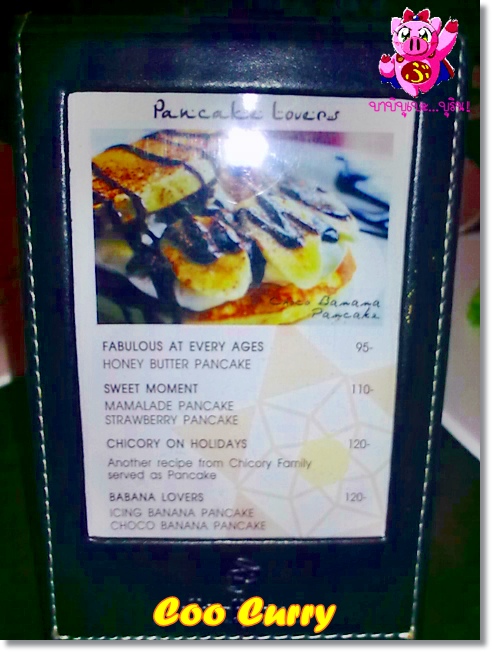 Pancake Lovers
Choco Banana
Pancake
FABULOUS AT EVERY AGES 95-
HONEY BUTTER PANCAKE
SWEET MOMENT 110-
MAMALADE PANCAKE
STRAWBERRY PANCAKE
CHICORY ON HOLIDAYS 120-
Another recipe from Chicory Family
served as Pancake
BABANA LOVERS 120-
ICING BANANA PANCAKE
CHOCO BANANA PANCAKE
Coo Curry